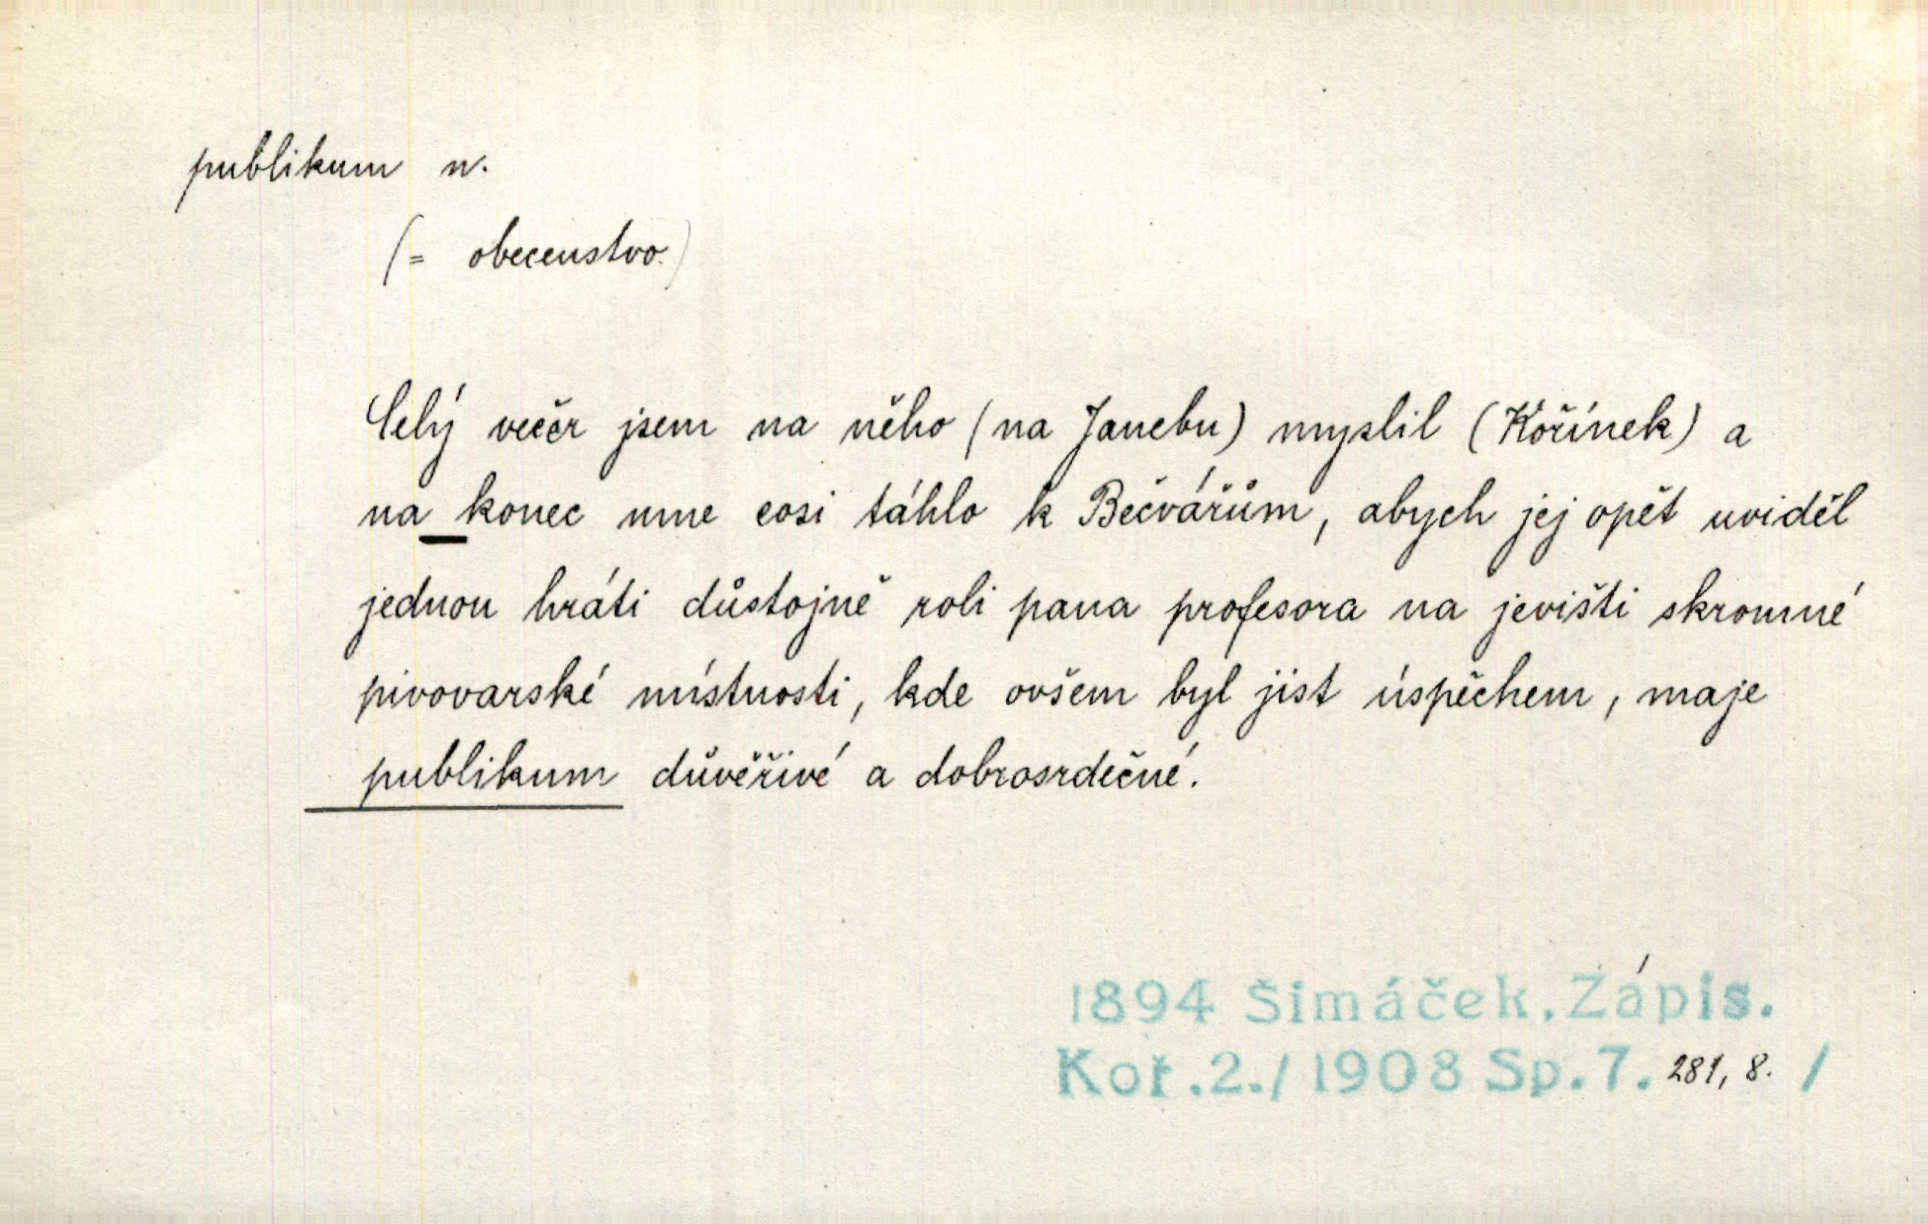 publikum n.
(= obecenstvo.)
Celý večer jsem na něho (na Janebu) myslil (Kořínek) a
na konec mne cosi táhlo k Bečvářům, abych jej opět uviděl
jednou hráti důstojně roli pana profesora na jevišti skromné
pivovarské místnosti, kde ovšem byl jist úspěchem, maje
publikum důvěřivé a dobrosrdečné.
1894 Šimáček, Zápis.
Koř.2./1908 Sp.7. 281, 8. /